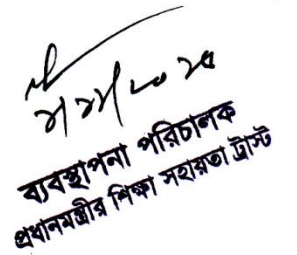 ব্যবস্থাপনা পরিচালক
প্রধানমন্ত্রীর শিক্ষা সহায়তা ট্রাস্ট